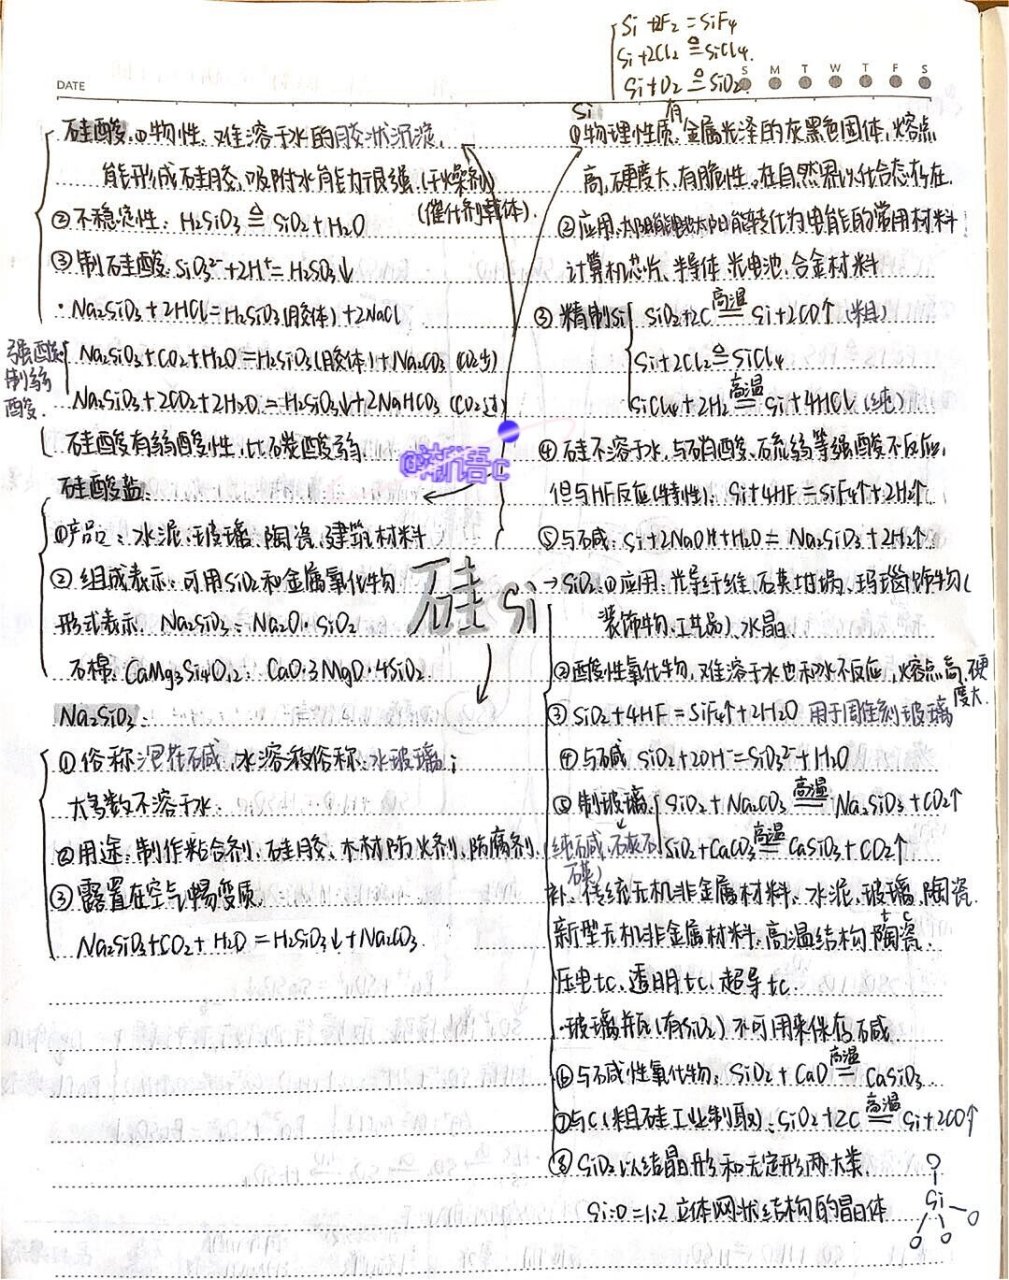 Si+2F₂=SiF₄
Si+2Cl₂≜SiCl₄.
Si+O₂≜SiO₂
DATE
S M T W T F S
硅酸. ①物性. 难溶于水的胶状沉淀,
能形成硅胶, 吸附水能力很强.(干燥剂)
(催化剂载体).
②不稳定性: H₂SiO₃≜SiO₂+H₂O
③制硅酸. SiO₃²⁻+2H⁺=H₂SO₃↓
· Na₂SiO₃+2HCl=H₂SiO₃(胶体)+2NaCl
强酸制弱酸.
Na₂SiO₃+CO₂+H₂O=H₂SiO₃(胶体)+Na₂CO₃ (CO₂少)
Na₂SiO₃+2CO₂+2H₂O=H₂SiO₃↓+2NaHCO₃ (CO₂过)
硅酸有弱酸性, 比碳酸弱.
@渐语c
硅酸盐.
①产品: 水泥. 玻璃. 陶瓷. 建筑材料
②组成表示: 可用SiO₂和金属氧化物
形式表示. Na₂SiO₃: Na₂O·SiO₂
石棉: CaMg₃Si₄O₁₂: CaO·3MgO·4SiO₂.
硅 Si
Na₂SiO₃.
①俗称泡花碱, 水溶液俗称: 水玻璃;
大多数不溶于水.
②用途: 制作粘合剂、硅胶、木材防火剂, 防腐剂.
③露置在空气中易变质.
Na₂SiO₃+CO₂+H₂O=H₂SiO₃↓+Na₂CO₃.
Si
①物理性质. 有金属光泽的灰黑色固体, 熔点
高, 硬度大, 有脆性. 在自然界以化合态存在.
②应用. 太阳能转化为电能的常用材料
计算机芯片. 半导体. 光电池. 合金材料
③精制Si SiO₂+2C 高温 Si+2CO↑ (粗)
Si+2Cl₂≜SiCl₄
SiCl₄+2H₂ 高温 Si+4HCl (纯)
④硅不溶于水, 与硝酸、硫酸等强酸不反应,
但与HF反应(特性). Si+4HF=SiF₄↑+2H₂↑
⑤与碱: Si+2NaOH+H₂O=Na₂SiO₃+2H₂↑
SiO₂. ①应用. 光导纤维、石英坩埚、玛瑙饰物(
装饰物. 工艺品)、水晶.
②酸性氧化物, 难溶于水也和水不反应, 熔点高, 硬度大.
③SiO₂+4HF=SiF₄↑+2H₂O 用于雕刻玻璃
④与碱 SiO₂+2OH⁻=SiO₃²⁻+H₂O
⑤制玻璃 SiO₂+Na₂CO₃ 高温 Na₂SiO₃+CO₂↑
(纯碱, 石灰石 石英) SiO₂+CaCO₃ 高温 CaSiO₃+CO₂↑
补. 传统无机非金属材料. 水泥. 玻璃. 陶瓷.
新型无机非金属材料. 高温结构陶瓷.
t c
压电tc. 透明tc. 超导tc.
·玻璃瓶(有SiO₂)不可用来保存碱.
⑥与碱性氧化物. SiO₂+CaO 高温 CaSiO₃.
⑦与C(粗硅工业制取): SiO₂+2C 高温 Si+2CO↑
⑧SiO₂以结晶形和无定形两大类.
Si:O=1:2 立体网状结构的晶体
O
Si—O
O O